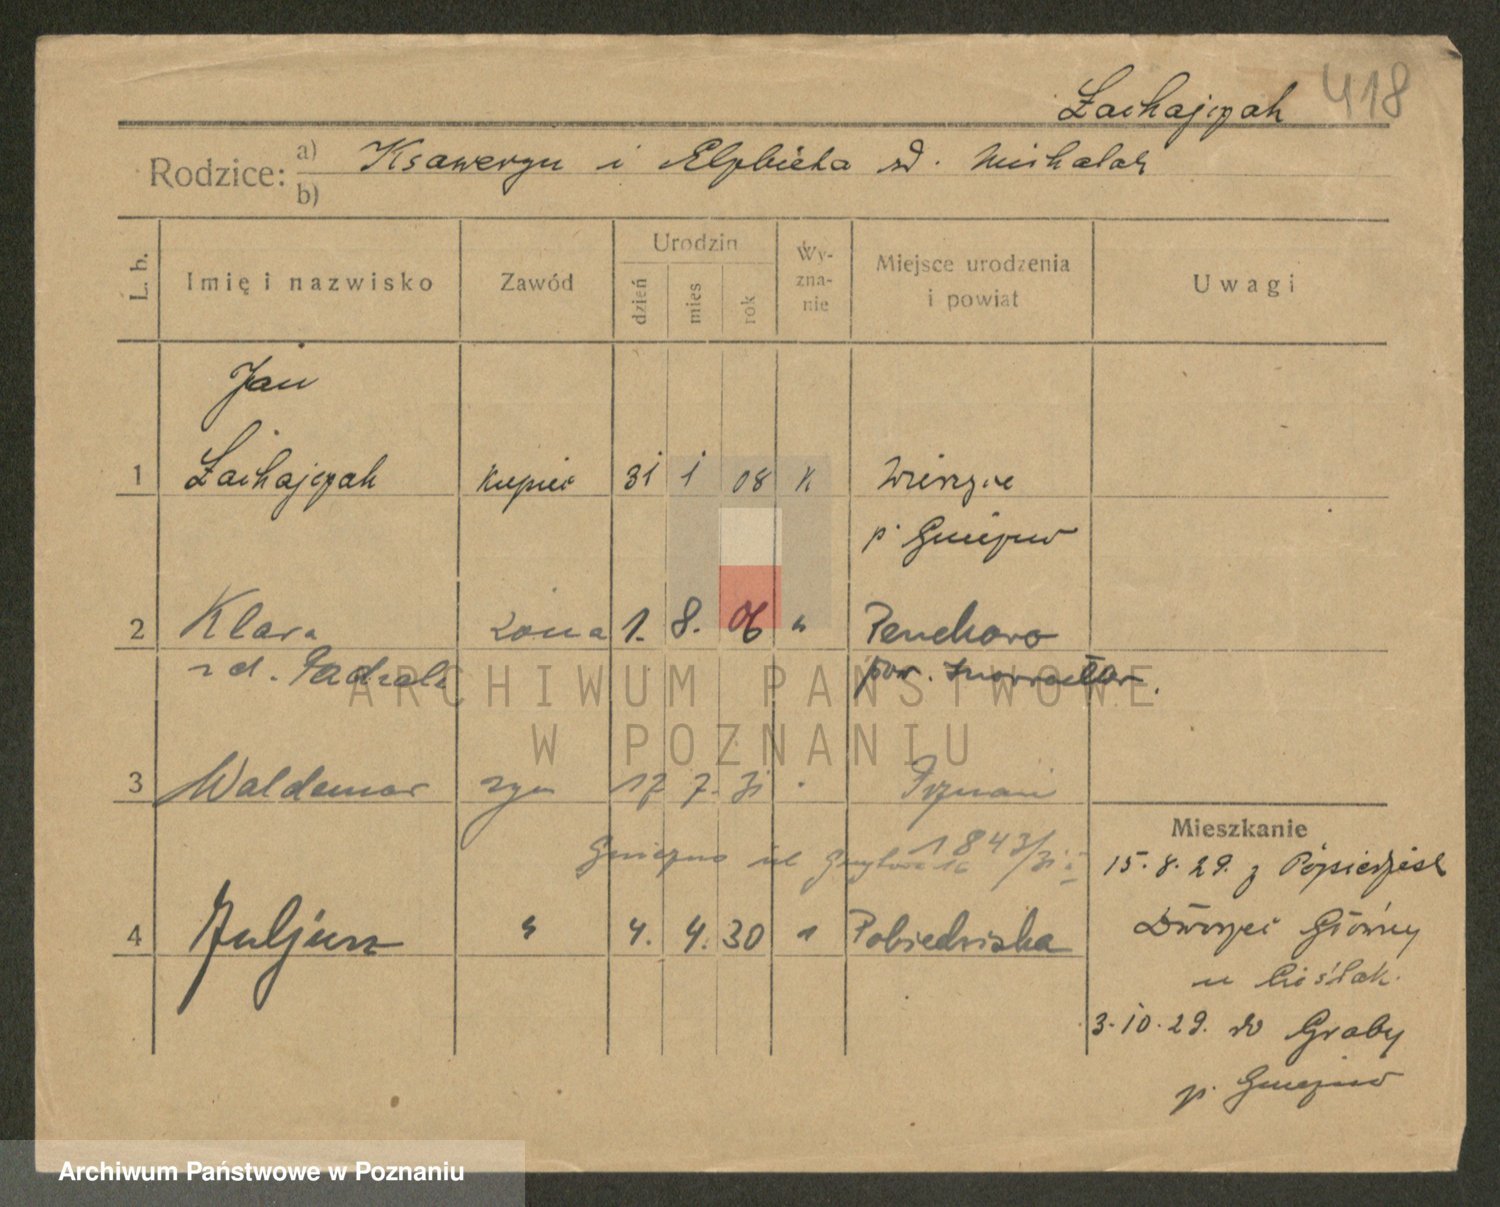 418
Zachajczak
Rodzice: a) Ksawerym i Elżbieta zd. Michalak
b)
L. b.
Imię i nazwisko
Zawód
Urodzin
dzień
mies
rok
Wy-
zna-
nie
Miejsce urodzenia
i powiat
Uwagi
Jan
1 Zachajczak kupiec 31 1 08 k Wierzyce
p. Gniezno
2 Klara żona 1. 8. 06 "
zd.
pow.
ARCHIWUM PAŃSTWOWE
W POZNANIU
3 Waldemar syn 17 7. 31 Poznań
Mieszkanie
Gniezno ul 16 1843/31
15.8.29. z
4 Juljusz " 4. 4. 30 Pobiedziska
Dworzec Główny
u Cieślak.
3.10.29. do Graby
p. Gniezno
Archiwum Państwowe w Poznaniu